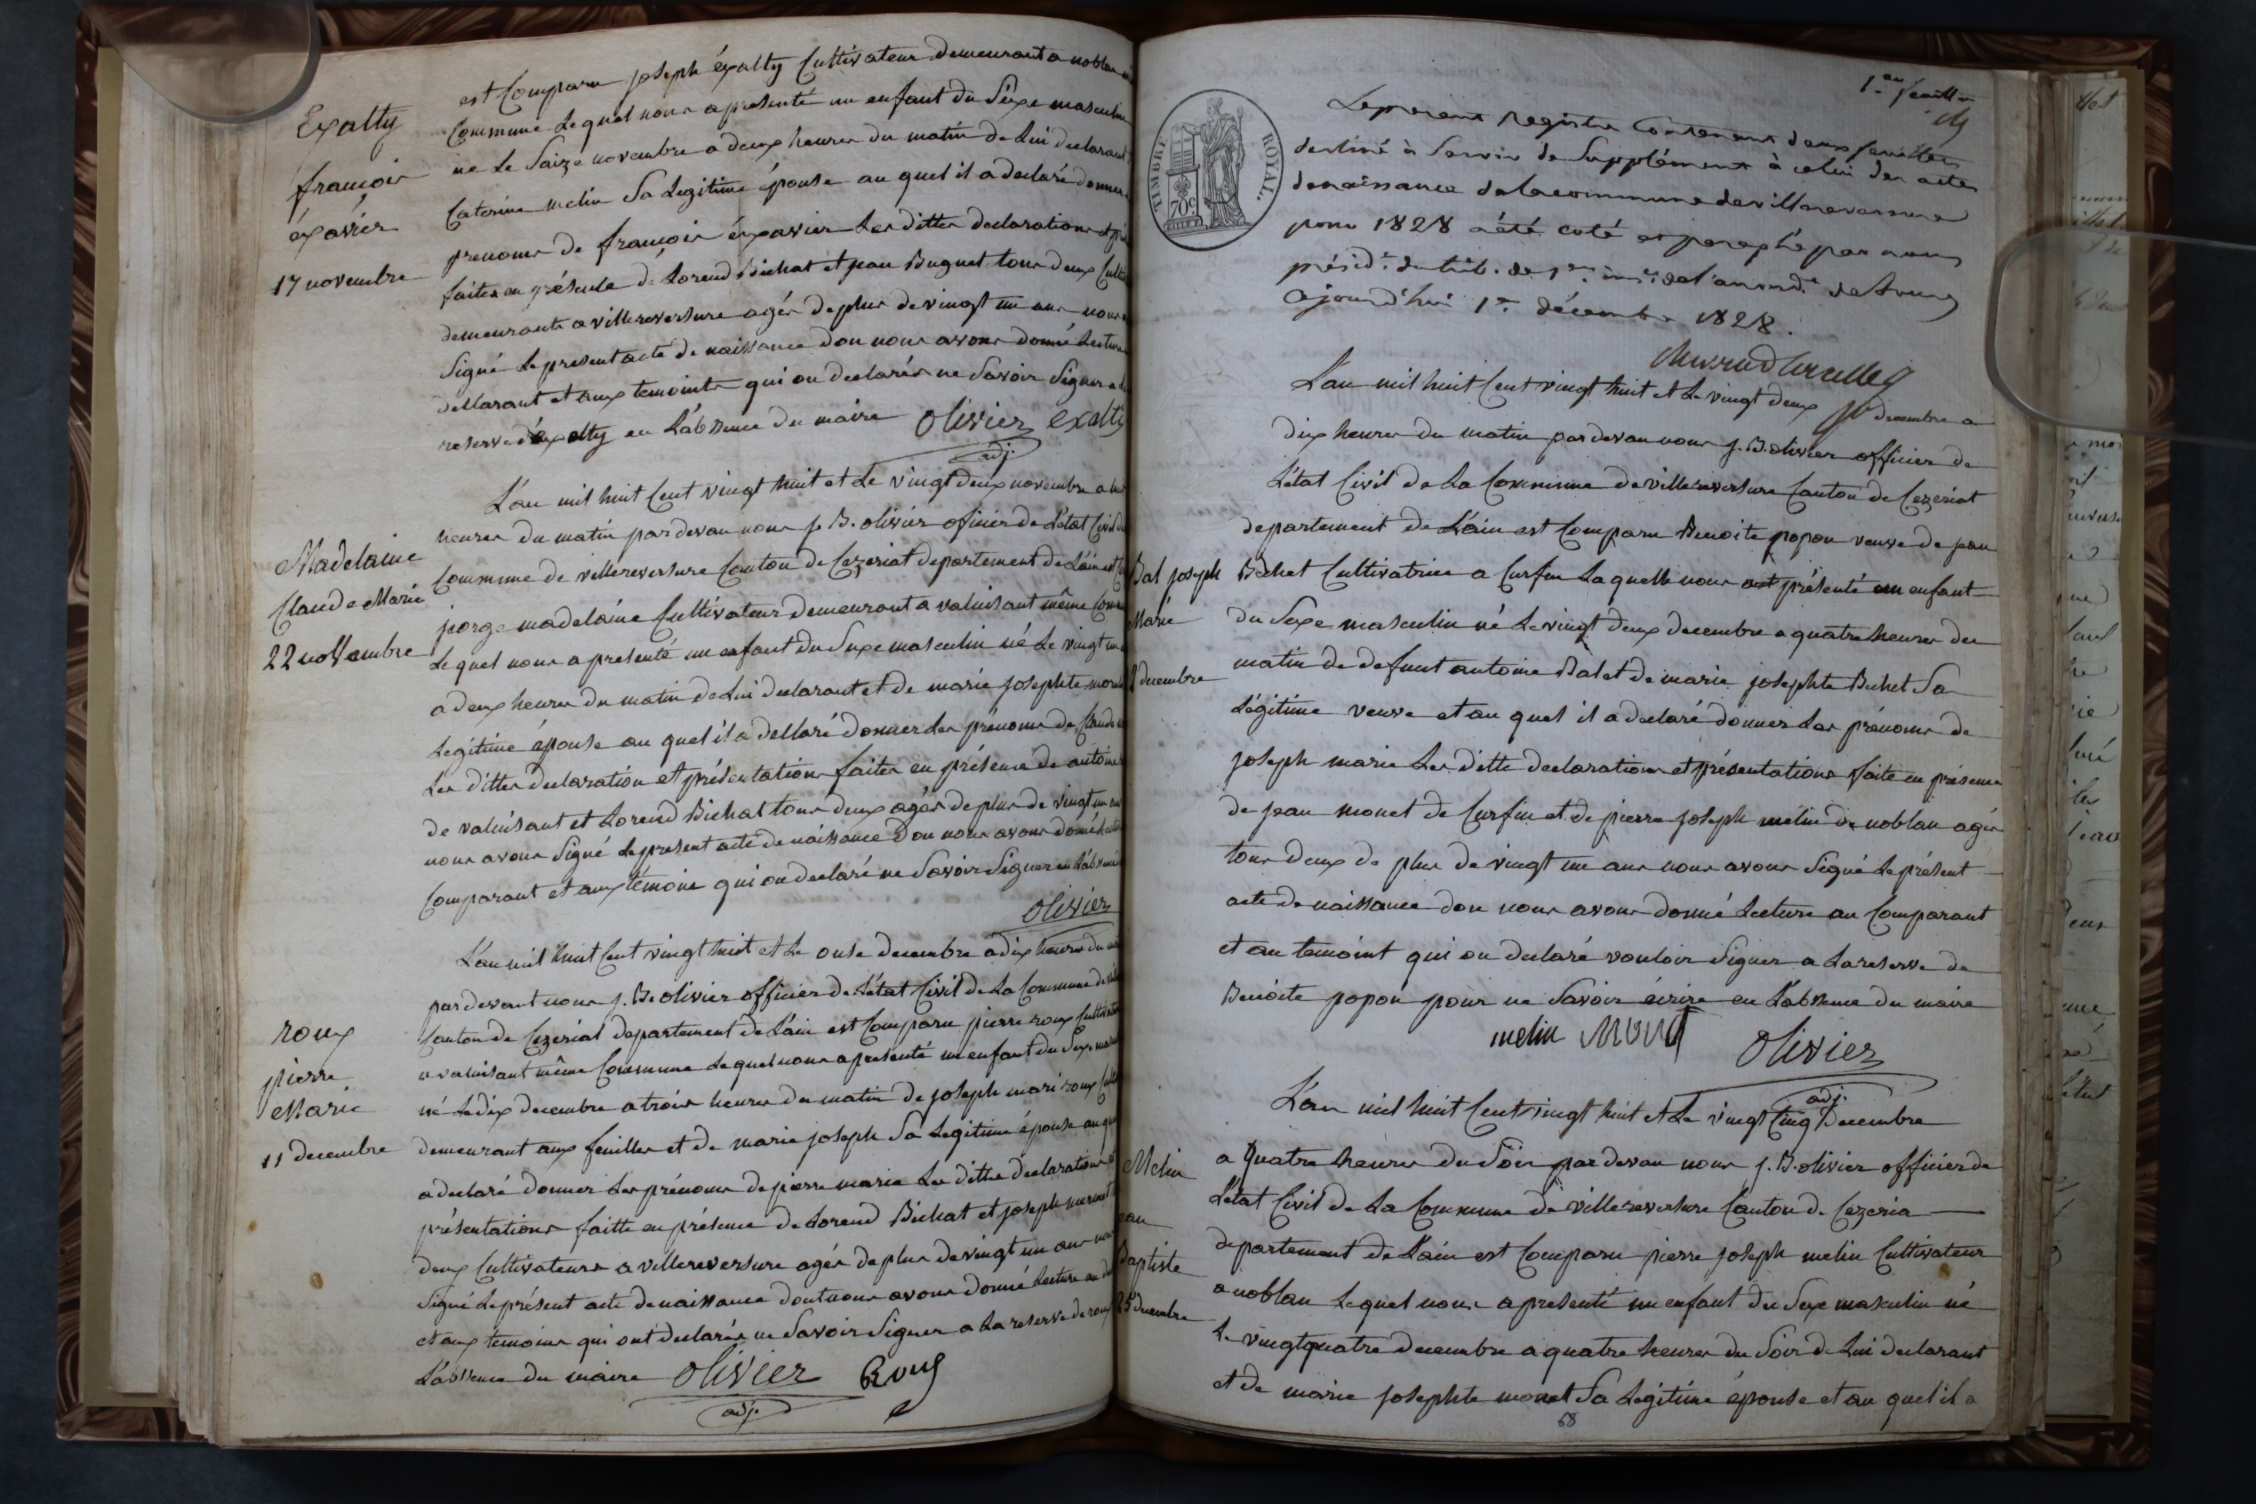 Exalty
françois
éxavier
17 novembre
est Comparu joseph éxalty Cultivateur demeurant a noblan
Commune Le quel nous a presenté un enfant du Sexe masculin
né Le Saize novembre a deux heures du matin de Lui declarant
Caterine melin Sa Legitime épouse au quel il a declaré donner
prenoms de françois éxavier Les dittes declarations et
faites en présence de Lorend Bichat et jean Buguet tous deux
demeurants a villereversure agés de plus de vingt un ans nous
Signé Le present acte de naissance don nous avons donné Lecture
dellarant et aux temoints qui on declarés ne Savoir Signer a
reserve d'éxalty en L'absence du maire Olivier exalty
adj.
Madelaine
Claude Marie
22 novembre
L'an mil huit Cent vingt huit et Le vingt deux novembre a
heures du matin pardevan nous j. B. olivier oficier de L'état Civil de
Commune de villereversure Canton de Cezeriat departement de L'ain est
jorge madelaine Cultivateur demeurant a valuisant même
Le quel nous a presenté un enfant du Sexe masculin né Le vingt un
a deux heures du matin de Lui declarant et de marie josephte
Legitime épouse au quel il a dellaré donner Les prénoms de Claude
Les dittes declaration et présentations faites en présence de antoine
de valuisant et Lorend Bichat tous deux agés de plus de vingt un ans
nous avons Signé Le present acte de naissance don nous avons donné
Comparant et aux témoins qui on declaré ne Savoir Signer en L'absence
Olivier
roux
pierre
Marie
11 decembre
L'an mil huit Cent vingt huit et Le onse decembre a dix heures du
pardevant nous j. B. olivier officier de L'état Civil de La Commune de
Canton de Cezeriat departement de L'ain est Comparu pierre roux Cultivateur
a valuisant même Commune Le quel nous a presenté un enfant du Sexe
né Le dix decembre a trois heures du matin de joseph mari roux
demeurant aux feuilles et de marie joseph Sa Legitime épouse au quel
a declaré donner Les prénoms de pierre marie Les dittes declarations
présentations faitte en présence de Lorend Bichat et joseph
deux Cultivateurs a villereversure agés de plus de vingt un ans
Signé Le présent acte de naissance dont nous avons donné Lecture au
et aux témoins qui ont declarés ne Savoir Signer a La reserve de roux
L'absence du maire Olivier Roux
adj.
1er feuillet
TIMBRE ROYAL
70c
Le present registre Contenant deux feuillets
destiné à Servir de Supplément à celui des actes
de naissance de la commune de villereversure
pour 1828 a été coté et paraphé par nous
présidt du trib. de 1ere inst. de l'arrondt de Bourg
ajourd'hui 1er décembre 1828.
L'an mil huit Cent vingt huit et Le vingt deux decembre a
dix heures du matin par devan nous j. B. olivier officier de
L'état Civil de La Commune de villereversure Canton de Cezeriat
departement de L'ain est Comparu Benoite popon veuve de jean
Bal joseph
Marie
decembre
Bichet Cultivatrice a Curfin Laquelle nous a présenté un enfant
du Sexe masculin né Le vingt deux decembre a quatre heures du
matin de defunt antoine Bal et de marie josephte Bichet Sa
Légitime veuve et au quel il a declaré donner Les prénoms de
joseph marie Les ditte declarations et présentations faite en présence
de jean monet de Curfin et de pierre joseph melin de noblan agés
tous deux de plus de vingt un ans nous avons Signé Le présent
acte de naissance don nous avons donné Lecture au Comparant
et au temoint qui on declaré vouloir Signer a La reserve de
Benoite popon pour ne Savoir écrire en L'absence du maire
melin Monet Olivier
adj.
Melin
Baptiste
25 decembre
L'an mil huit Cent vingt huit et Le vingt Cinq decembre
a Quatre heures du Soir par devan nous j. B. olivier officier de
L'état Civil de La Commune de villereversure Canton de Cezeria
departement de L'ain est Comparu pierre joseph melin Cultivateur
a noblan Lequel nous a presenté un enfant du Sexe masculin né
Le vingtquatre decembre a quatre heures du Soir de Lui declarant
et de marie josephte monet Sa Legitime épouse et au quel il a
68